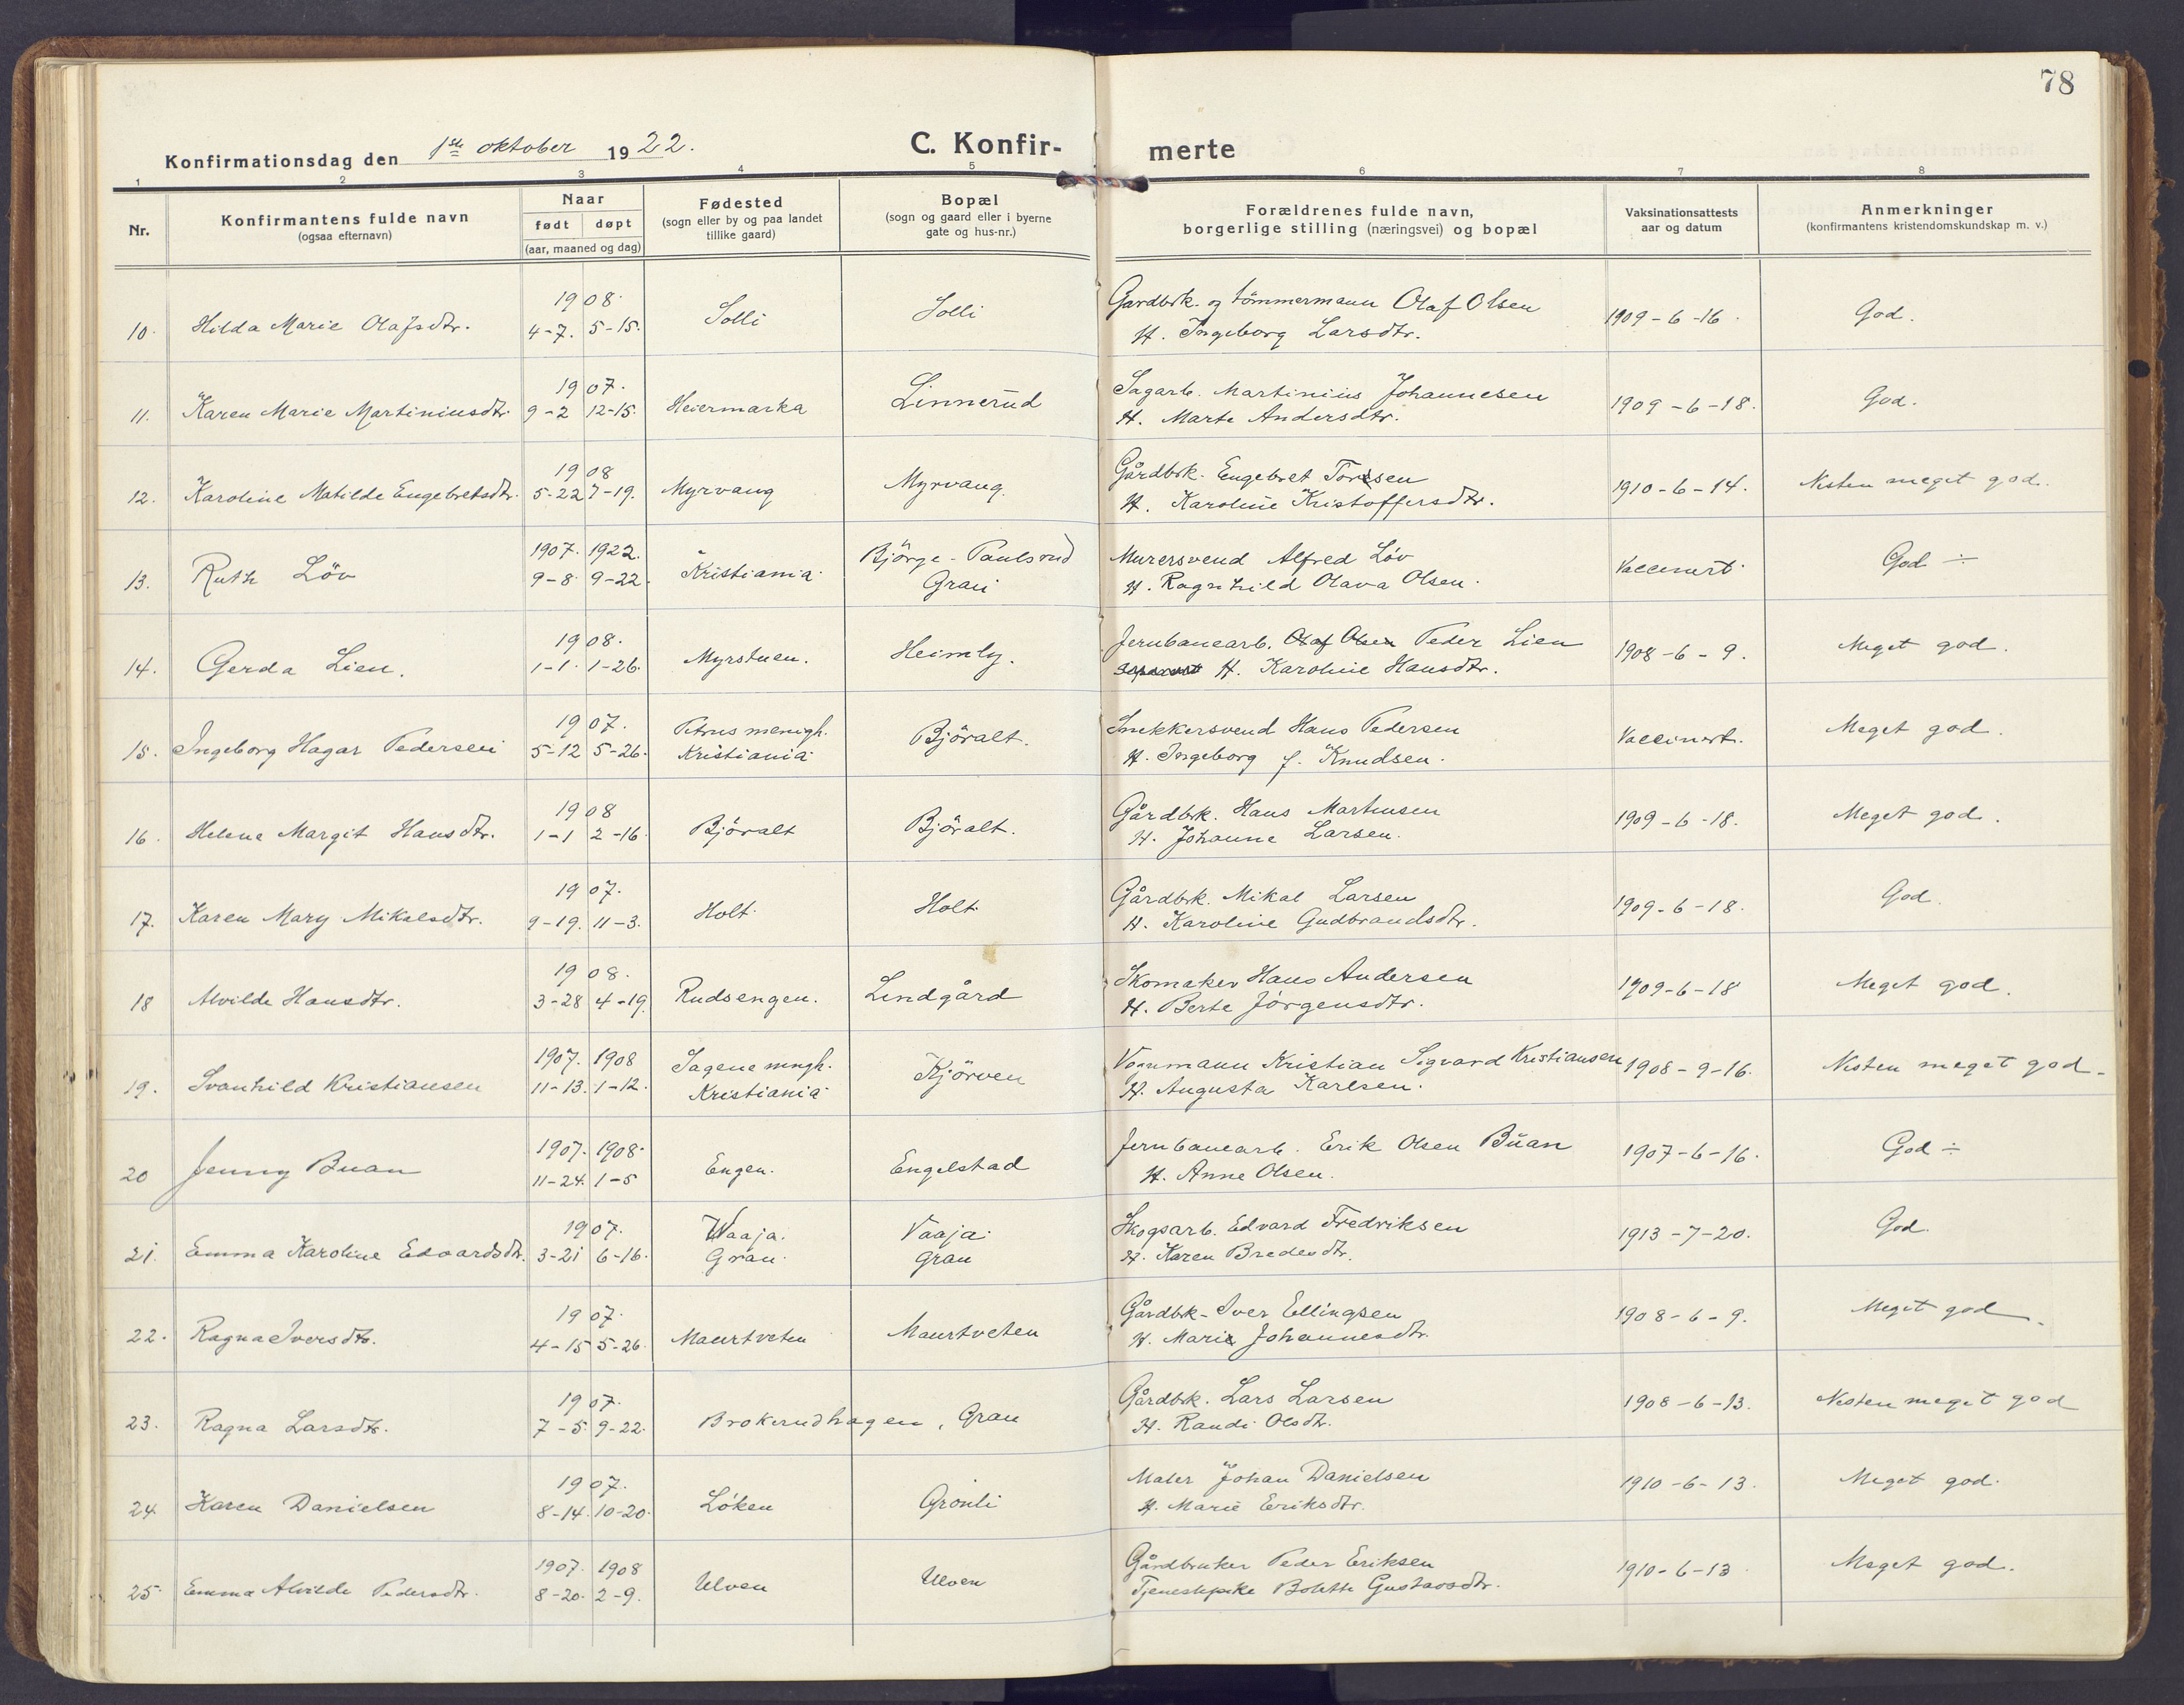 78
Konfirmationsdag den 1ste oktober 1922.
C. Konfirmerte
1 2 3 4 5 6 7 8
Nr.
Konfirmantens fulde navn
(ogsaa efternavn)
Naar
født døpt
(aar, maaned og dag)
Fødested
(sogn eller by og paa landet
tillike gaard)
Bopæl
(sogn og gaard eller i byerne
gate og hus-nr.)
Forældrenes fulde navn,
borgerlige stilling (næringsvei) og bopæl
Vaksinationsattests
aar og datum
Anmerkninger
(konfirmantens kristendomskundskap m. v.)
1908. Gardbrk. og tömmermann Olaf Olsen
10. Hilda Marie Olafsdtr. 4-7. 5-15. Solli Solli H. Ingeborg Larsdtr. 1909-6-16. God.
1907. Sagarb. Martinius Johannesen
11. Karen Marie Martiniusdtr. 9-2 12-15. Heiermarka Linnerud H. Marte Andersdtr. 1909-6-18. God.
1908 Gårdbrk. Engebret Torsen
12. Karoline Matilde Engebretsdtr. 5-22 7-19. Myrvang Myrvang. H. Karoline Kristoffersdtr. 1910-6-14. Nesten meget god.
1907. 1922. Björge-Paulsrud Murersvend Alfred Löv
13. Ruth Löv 9-8. 9-22. Kristiania. Gran H. Ragnhild Olava Olsen. Vaccinert. God ÷
1908. Jernbanearb. Olaf Olsen Peder Lien
14. Gerda Lien. 1-1. 1-26. Myrstuen. Heimly. H. Karoline Hansdtr. 1908-6-9. Meget god.
1907. Petrus menigh. Snekkersvend Hans Pedersen
15. Ingeborg Hagar Pedersen 5-12 5-26. Kristiania. Björalt. H. Ingeborg f. Knudsen. Vaccinert. Meget god.
1908 Gårdbk. Hans Martinsen
16. Helene Margit Hansdtr. 1-1 2-16. Björalt Björalt. H. Johanne Larsen. 1909-6-18. Meget god.
1907. Gårdbrk. Mikal Larsen
17. Karen Mary Mikalsdtr. 9-19. 11-3. Holt. Holt. H. Karoline Gudbrandsdtr. 1909-6-18. God.
1908. Skomaker Hans Andersen
18 Alvilde Hansdtr. 3-28 4-19. Rudsengen. Lindgård H. Berte Jörgensdtr. 1909-6-18 Meget god.
1907. 1908 Sagene mngh. Vognmann Kristian Sigvard Kristiansen
19. Svanhild Kristiansen 11-13. 1-12. Kristiania. Kjörven H. Augusta Karlsen. 1908-9-16. Nesten meget god.
1907. 1908. Jernbanearb. Erik Olsen Buan
20 Jenny Buan 11-24. 1-5 Engen. Engelstad H. Anne Olsen. 1907-6-16. God ÷
1907. Vaaja. Vaaja. Skogsarb. Edvard Fredriksen
21. Emma Karoline Edvardsdtr. 3-21 6-16. Gran. Gran H. Karen Bredesdtr. 1913-7-20. God.
1907. Gårdbk. Iver Ellingsen
22. Ragna Iversdtr. 4-15 5-26. Maurtveten Maurtveten H. Marie Johannesdtr. 1908-6-9. Meget god.
1907. Gårdbk. Lars Larsen
23. Ragna Larsdtr. 7-5. 9-22. Brokerudhagen, Gran H. Randi Olsdtr. 1908-6-13. Nesten meget god
1907. Maler Johan Danielsen
24 Karen Danielsen 8-14. 10-20. Löken Grönli H. Marie Eriksdtr. 1910-6-13. Meget god.
1907. 1908 Gårdbruker Peder Eriksen
25. Emma Alvilde Pedersdtr. 8-20. 2-9. Ulven Ulven Tjenestepike Bolette Gustavsdtr. 1910-6-13 Meget god.